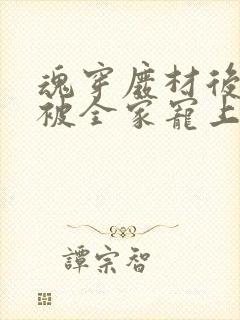 魂穿廢材後
被全家寵上
譚宗智